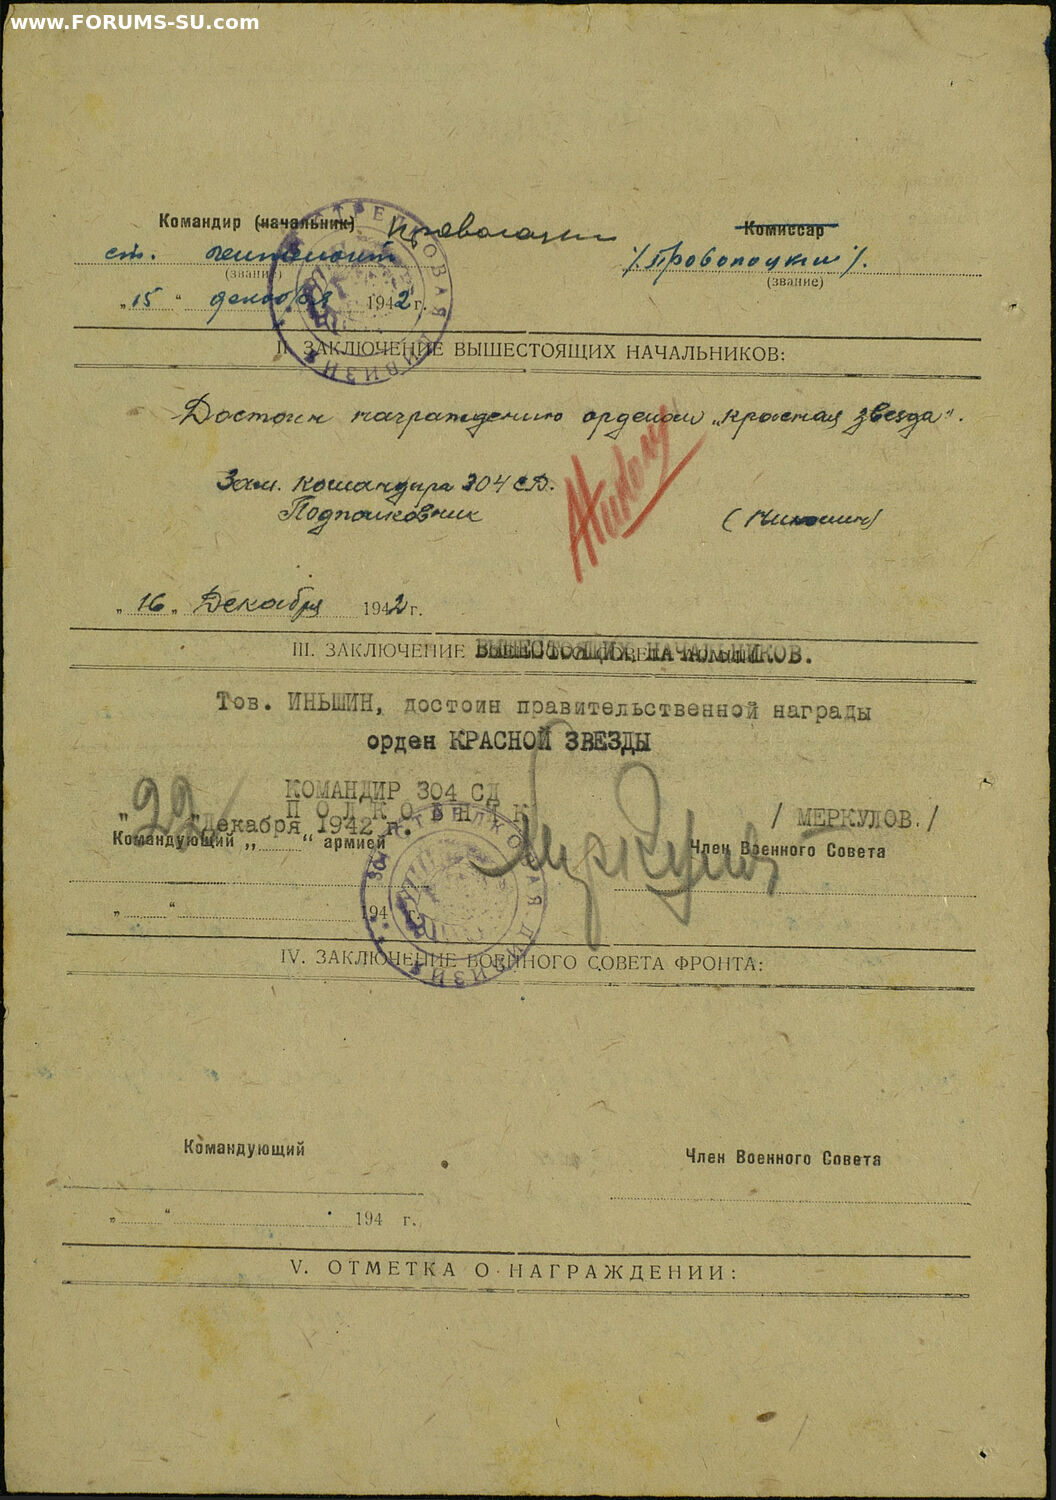 www.FORUMS-SU.com
Командир (начальник) Комиссар
ст. лейтенант
(звание) (звание)
„15“ декабря 1942 г.
СТРЕЛКОВАЯ ДИВИЗИЯ
II. ЗАКЛЮЧЕНИЕ ВЫШЕСТОЯЩИХ НАЧАЛЬНИКОВ:
Достоин награждению орденом „Красная звезда“.
Зам. командира 304 СД.
Подполковник
„16„ Декабря 1942 г.
III. ЗАКЛЮЧЕНИЕ ВЫШЕСТОЯЩИХ НАЧАЛЬНИКОВ.
Тов. ИНЬШИН, достоин правительственной награды
орден КРАСНОЙ ЗВЕЗДЫ
КОМАНДИР 304 СД
ПОЛКОВНИК
/ МЕРКУЛОВ./
"22" декабря 1942 г.
Командующий „ “ армией Член Военного Совета
„ “ 194 г.
СТРЕЛКОВАЯ ДИВИЗИЯ
IV. ЗАКЛЮЧЕНИЕ ВОЕННОГО СОВЕТА ФРОНТА:
Командующий Член Военного Совета
„ “ 194 г.
V. ОТМЕТКА О НАГРАЖДЕНИИ: